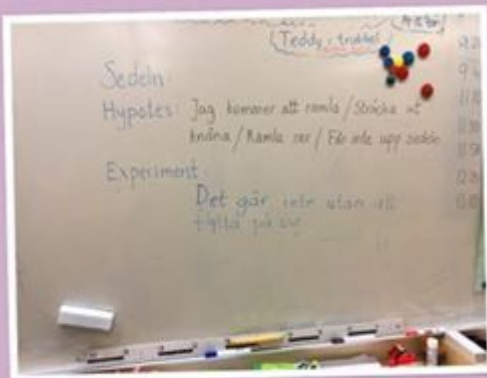 (Teddy i trubbel)
Sedeln:
Hypotes: Jag kommer att ramla / Sträcka ut
knäna / Ramla ner / Får inte upp sedeln
Experiment:
Det går inte utan att
flytta på sig